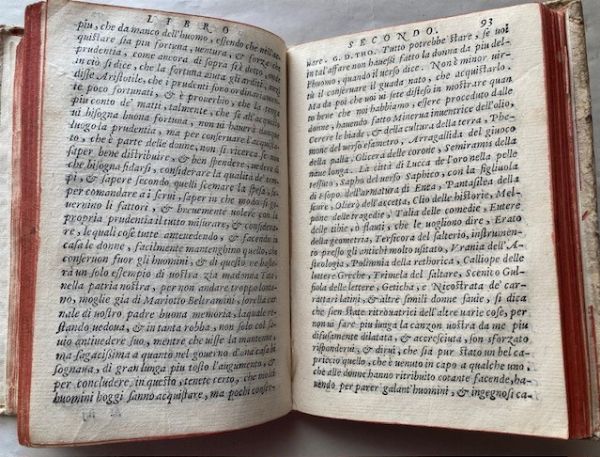 LIBRO
piu, che da manco dell'huomo, essendo che nell'ac-
quistare sia piu fortuna, uentura, & forze, che
prudentia, come ancora di sopra s'è detto, onde
in ciò si dice, che la fortuna aiuta gli arditi, anzi
disse Aristotile, che i prudenti sono ordinariamente
poco fortunati, & è prouerbio, che la
piu conto de' matti, talmente, che se all'acquistar
ui bisogna buona fortuna, non ui hauerà dunque
luogo la prudentia, ma per conseruare l'acquistato,
che è parte delle donne, non si ricerca se non
saper bene distribuire, & ben spendere, uedere di
che bisogna fidarsi, considerare la qualità de' tem-
pi, & sapere secondo quelli scemar la spesa,
per comandare a i serui, saper in che modo si go-
uernino li fattori, & breuemente uolere con la
propria prudentia il tutto misurare, & considera-
re, le quali cose tutte antedendo, & facendo in
casa le donne, facilmente mantenghino quello, che
conseruon fuor gli huomini, & di questo ue basta-
rà un solo essempio di uostra zia madonna
nella patria nostra, per non andare troppo lonta-
no, moglie già di Mariotto Beltramini, sorella car-
nale di uostro padre buona memoria, la quale re-
stando uedoua, & in tanta robba, non solo col sa-
uio antiuedere suo, mentre che uisse la mantenne,
ma sagacissima a quanto nel gouerno d'una casa bi-
sognaua, di gran lunga piu tosto l'augumentò, &
per concludere, in questo, tenete certo, che molti
huomini hoggi sanno acquistare, ma pochi conser-
SECONDO. 93
uare. G. D. THO. Tutto potrebbe stare, se uoi
in tal'affare non hauesse fatto la donna da piu del-
l'huomo, quando il uerso dice. Non è minor uir-
tù il conseruare il guada nato, che acquistarlo.
Ma da poi che uoi ui sete disteso in mostrare quan-
to bene che noi habbiamo, essere proceduto dalle
donne, hauendo fatto Minerua inuentrice dell'olio,
Cerere le biade, & della cultura della terra, Phe-
moe del uerso esametro, Arragallida del giuoco
della palla, Glicera delle corone, Semiramis della
naue longa. La città di Lucca de l'oro nella pelle
tessuto, Sapho del uerso Saphico, con la figliuola
di Esopo. dell'armatura di Enea, Pantasilea della
scure, Olierò dell'accetta, Clio delle historie, Mel-
pone delle tragedie, Talia delle comedie, Eutere
delle tibie, ò flauti, che le uogliono dire, Erato
della geometria, Tersicora del salterio, instrumen-
to presso gli antichi molto usitato, Vrania dell'A-
strologia, Polimnia della rethorica, Calliope delle
lettere Greche, Trimela del saltare, Scenito Gul-
fiola delle lettere, Geticha, e Nicostrata de' car-
rattari latini, & altre simili donne sauie, si dica
che sien state ritrouatrici dell'altre uarie cose, per
non ui fare piu lunga la canzon uostra da me piu
difusamente dilatata, & accresciuta, son sforzato
risponderui, & dirui, che sia pur stato un bel ca-
priccio quello, che è uenuto in capo a qualche uno,
che alle donne hanno ritribuito cotante facende, ha-
uendo per parer galant'huomini, & ingegnosi ca-